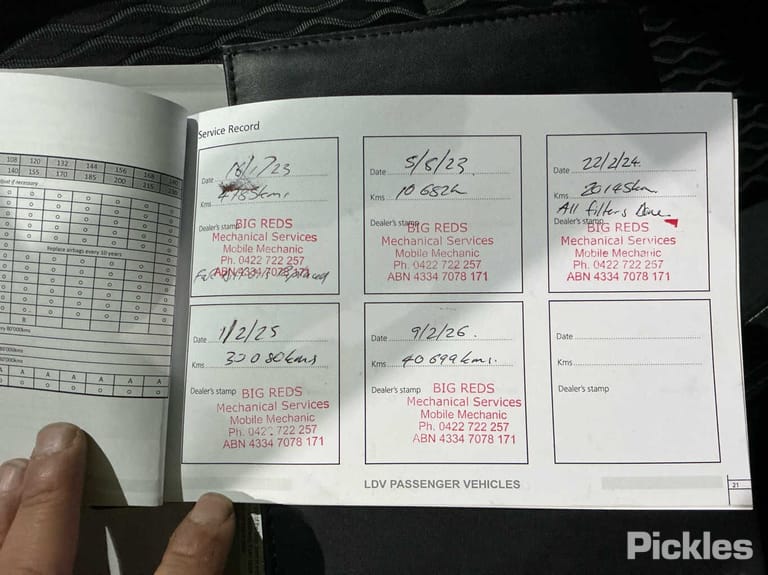 108 120 132 144 156 168
140 155 170 185 200 215
Replace airbags every 10 years
R
A A A A A A
o o o o o o
Service Record
Date 16/1/23
Kms
Dealer's stamp
BIG REDS
Mechanical Services
Mobile Mechanic
Ph. 0422 722 257
ABN 4334 7078 171
Date 5/8/23.
Kms
Dealer's stamp
BIG REDS
Mechanical Services
Mobile Mechanic
Ph. 0422 722 257
ABN 4334 7078 171
Date 22/2/24.
Kms 20145km
All filters Done
Dealer's stamp
BIG REDS
Mechanical Services
Mobile Mechanic
Ph. 0422 722 257
ABN 4334 7078 171
Date 1/2/25
Kms 30080kms
Dealer's stamp
BIG REDS
Mechanical Services
Mobile Mechanic
Ph. 0422 722 257
ABN 4334 7078 171
Date 9/2/26.
Kms 40699kms.
Dealer's stamp
BIG REDS
Mechanical Services
Mobile Mechanic
Ph. 0422 722 257
ABN 4334 7078 171
Date
Kms
Dealer's stamp
LDV PASSENGER VEHICLES
21
Pickles